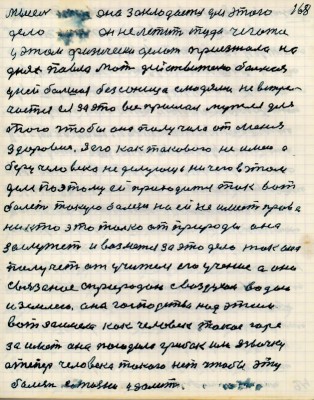 168
мысел она закладается для этого
дело он нелетит туда чегота
у этом физически делот приезжала на
днях павла мот действително болшая
у ней болшая безсоница слюдями не встре
чается
этого чтобы она получила от меня
здоровия. Я его как такового не имею а
беру человека не делующе ничего в этом
деле поэтому ей приходится так вот
болет такую болезн на ей не имеет права
никто это толко от природы она
заслужет и возмется за это дело так она
получет от учителя его учение а оно
связаное с природою с воздухом водою
и землею. она господства над этим
вот заимела как человек такое горе
за имот она походила грибок или язвочку
а тепер человека такого нет чтобы эту
болезн